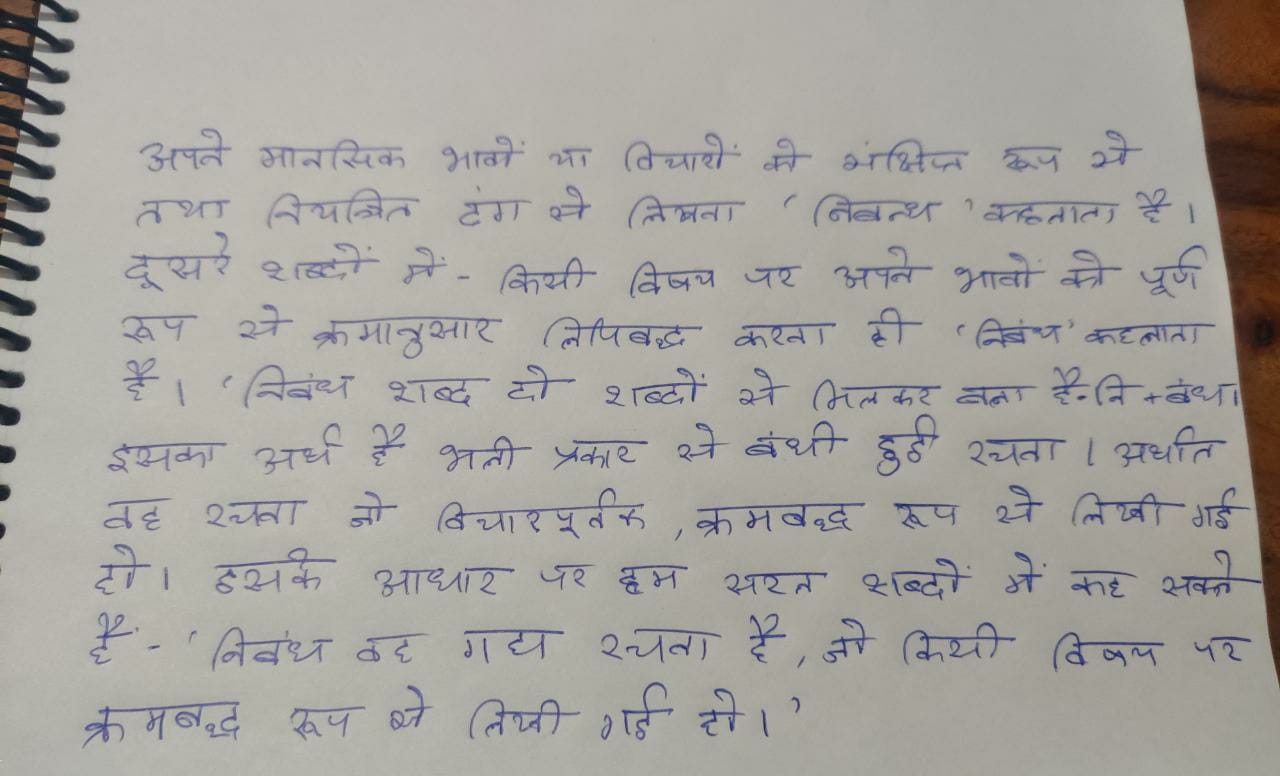 अपने मानसिक भावों या विचारों को संक्षिप्त रूप से
तथा नियन्त्रित ढंग से लिखना 'निबन्ध' कहलाता है।
दूसरे शब्दों में - किसी विषय पर अपने भावों को पूर्ण
रूप से क्रमानुसार लिपिबद्ध करना ही 'निबंध' कहलाता
है। 'निबंध शब्द दो शब्दों से मिलकर बना है- नि + बंध।
इसका अर्थ है भली प्रकार से बंधी हुई रचना। अर्थात
वह रचना जो विचारपूर्वक, क्रमबद्ध रूप से लिखी गई
हो। इसके आधार पर हम सरल शब्दों में कह सकते
हैं - 'निबंध वह गद्य रचना है, जो किसी विषय पर
क्रमबद्ध रूप से लिखी गई हो।'